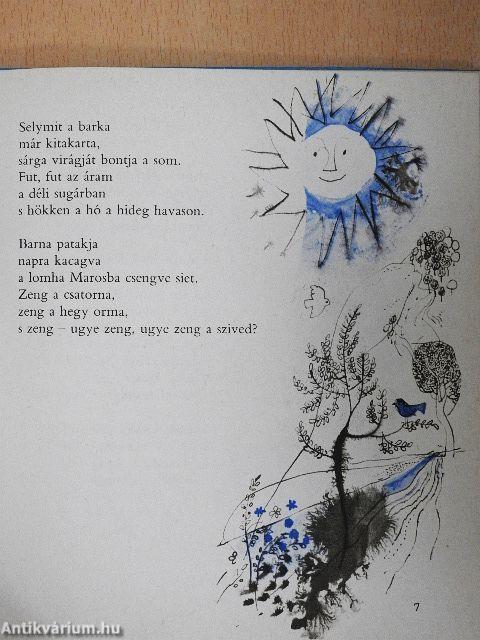 Selymit a barka
már kitakarta,
sárga virágját bontja a som.
Fut, fut az áram
a déli sugárban
s hökken a hó a hideg havason.
Barna patakja
napra kacagva
a lomha Marosba csengve siet.
Zeng a csatorna,
zeng a hegy orma,
s zeng – ugye zeng, ugye zeng a szived?
7
Antikvárium.hu